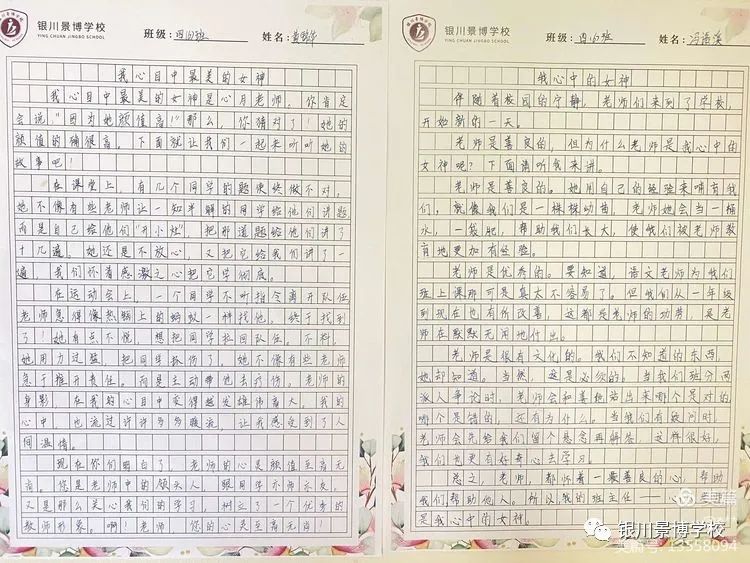 银川景博学校
YING CHUAN JINGBO SCHOOL
班级:四(6)班
姓名:
我心目中最美的女神
我心目中最美的女神是心月老师，你肯定
会说“因为她颜值高！”那么，你猜对了！她的
颜值的确很高。下面就让我们一起来听听她的
故事吧！
在课堂上，有几个同学的题使终做不对，
她不像有些老师让一知半解的同学给他们讲题
而是自己给他们“开小灶”，把那道题给他们讲了
十几遍。她还是不放心，又把它给我们讲了一
遍，我们怀着感激之心把它学彻底。
在运动会上，一个同学不听指令离开队伍
老师急得像热锅上的蚂蚁一样找他，终于找到
了！她有点不悦，想把同学拉回队伍。不料，
她用力过猛，把同学拉伤了。她不像有些老师
急于推开责任。而是主动带他去疗伤。老师的
身影，在我的心目中变得越发雄伟高大。我的
心中，也流过许许多多暖流，让我感受到了人
间温情。
现在你们明白了，老师的心灵颜值至高无
肖。您是老师中的领头人，跟同学亦师亦友，
又是那么关心我们的学习，树立了一个优秀的
教师形象。啊！老师，您的心灵至高无肖！
银川景博学校
YING CHUAN JINGBO SCHOOL
班级:四(6)班
姓名:冯语溪
我心中的女神
伴随着校园的宁静，老师们来到了学校，
开始新的一天。
老师是善良的，但为什么老师是我心中的
女神呢？下面请听我来讲。
老师是善良的。她用自己的经验来哺育我
们，就像我们是一棵棵幼苗，老师她会当一桶
水，一袋肥，帮助我们长大，使我们被老师教
育地更加有经验。
老师是优秀的。要知道，语文老师为我们
班上课那可是真太不容易了。但我们从一年级
到现在也有所改善，这都是老师的功劳，是老
师在默默无闻地付出。
老师是很有文化的。我们不知道的东西，
她却知道。当然，这是必须的。当我们班分两
派人争论时，老师会和善地站出来哪个是对的，
哪个是错的，还有为什么。当我们有疑问时，
老师会先给我们留个悬念再解答，这样很好，
我们也更有好奇心去学习。
总之，老师，都怀着一颗善良的心，帮助
我们，帮助他人。所以，我的班主任——心
是我心中的女神。
美篇
银川景博学校
13558094